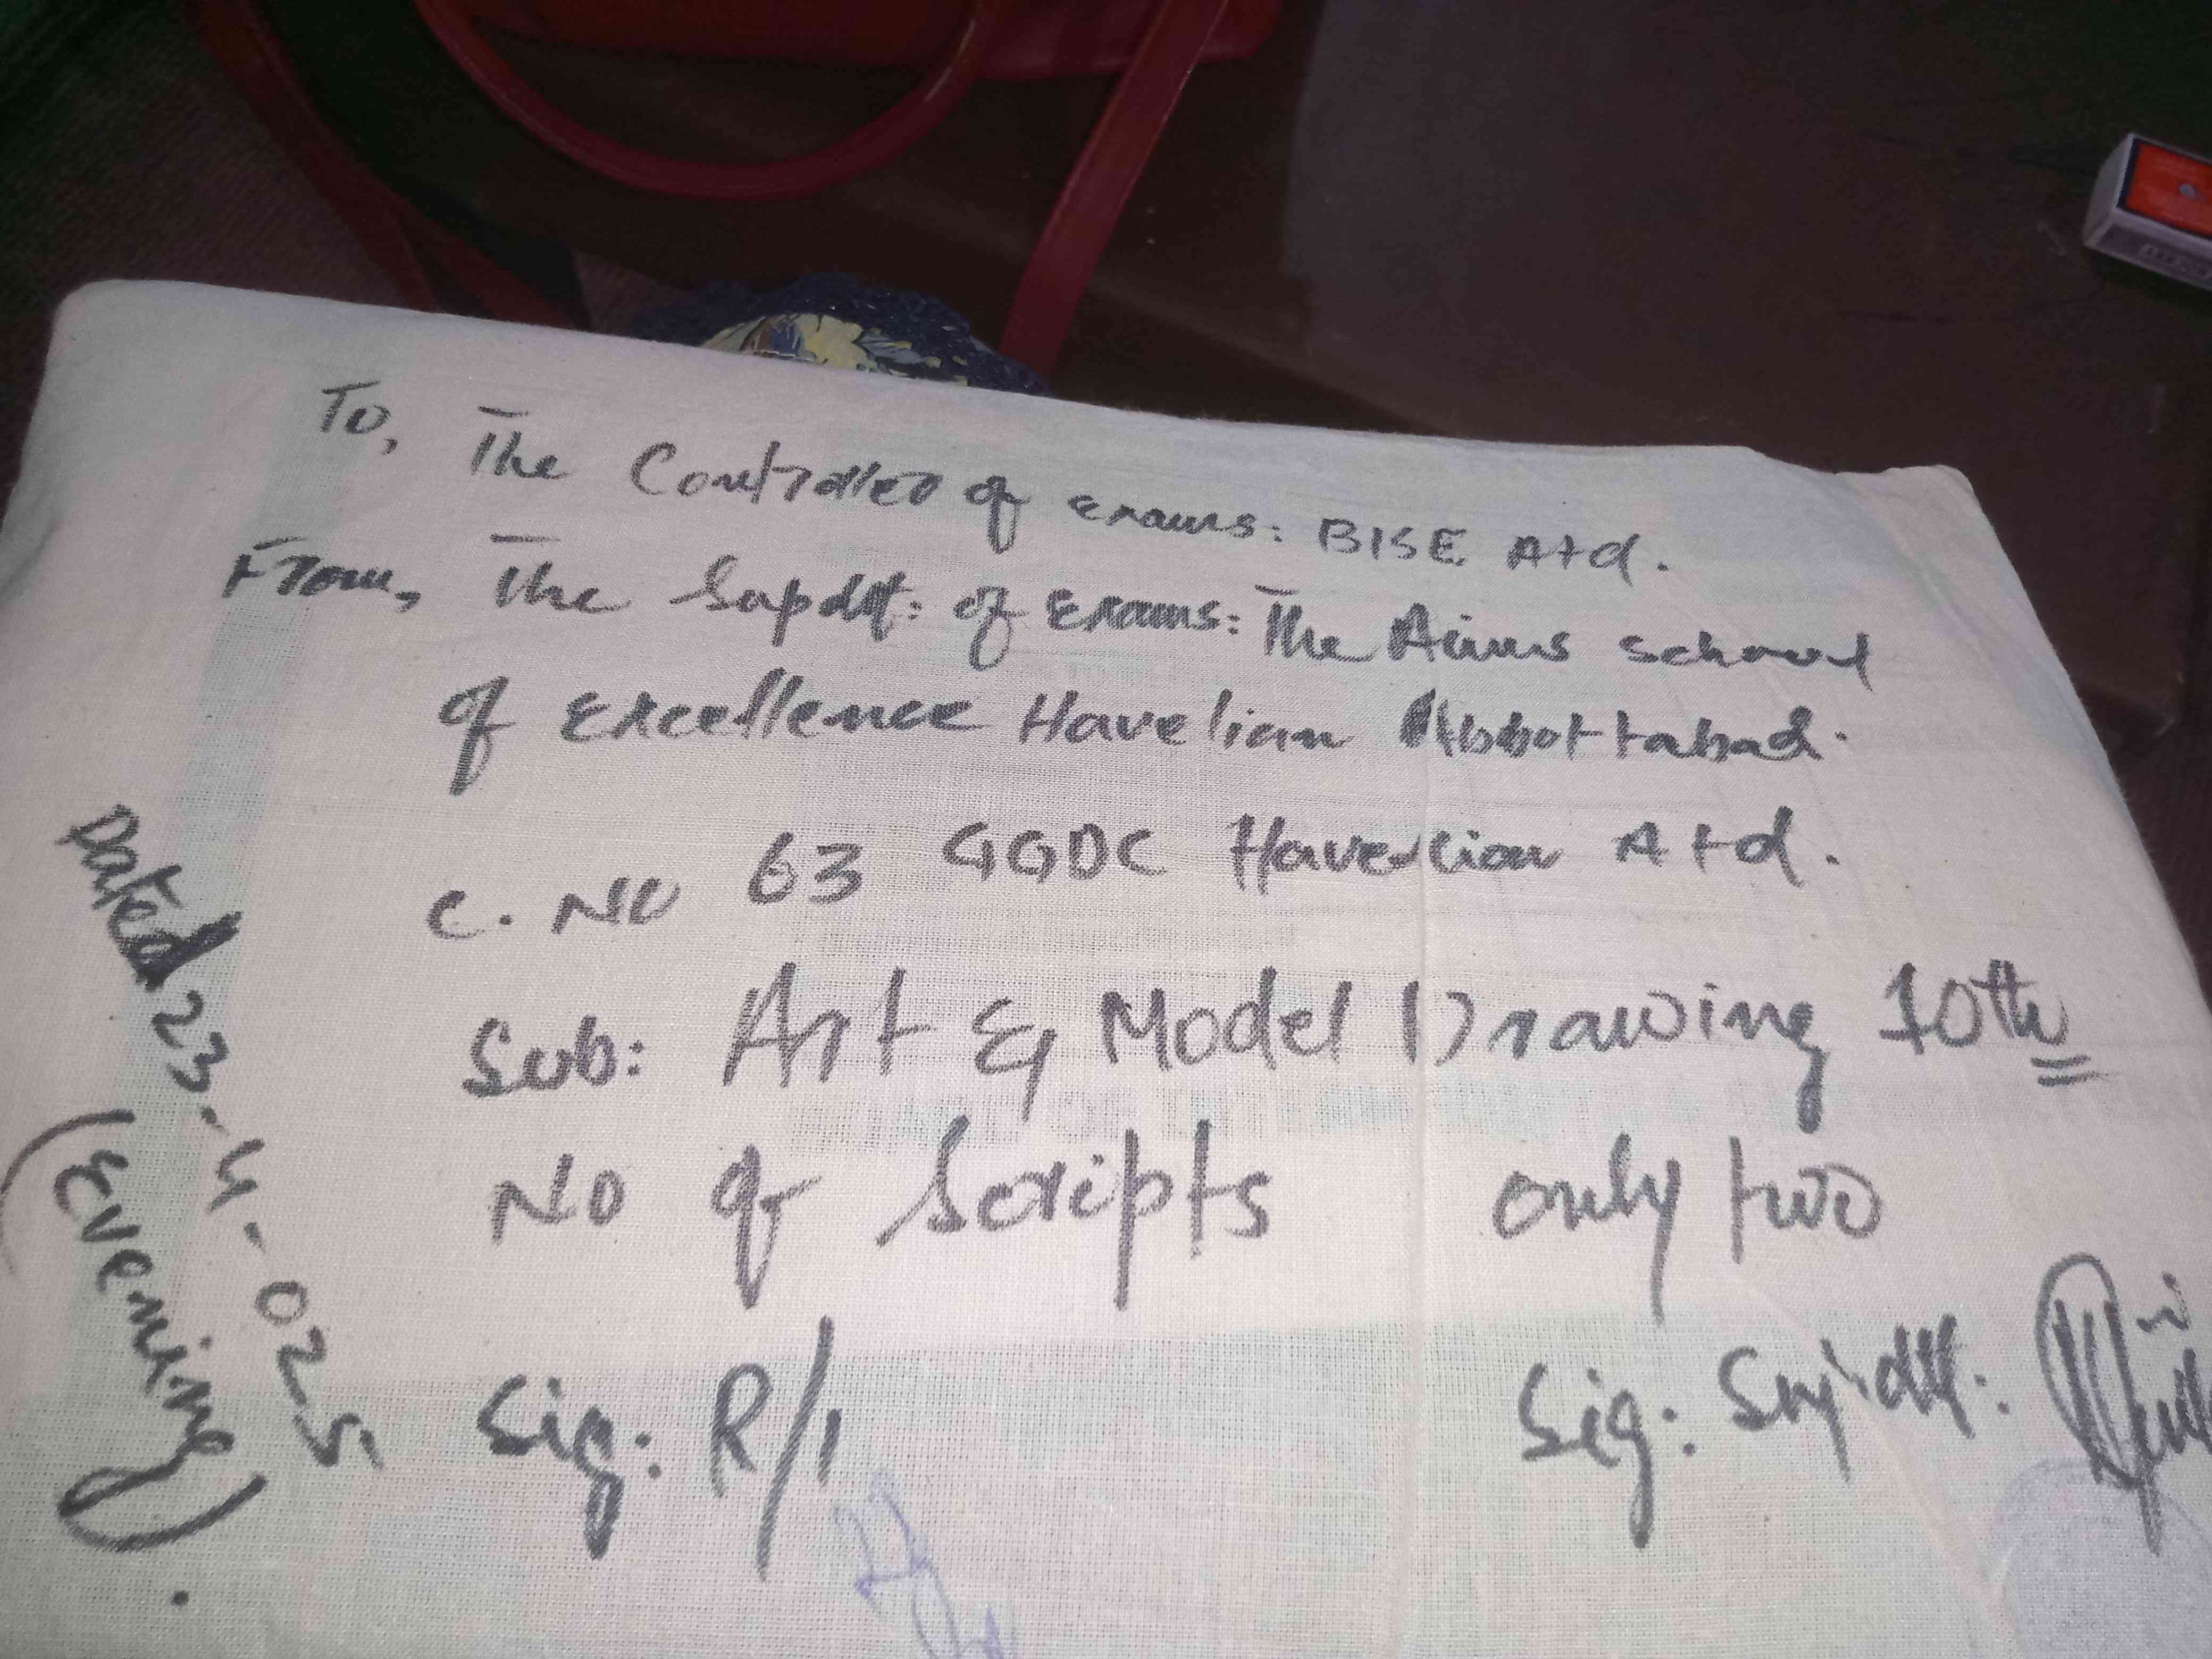 To, The Controller of Exams: BISE Atd.
From, The Supdtt: of Exams: The Aims school
of Excellence Havelian Abbottabad.
C. No 63 GGDC Havelian Atd.
Sub: Art & Model Drawing 10th
No of Scripts only two
Sig: R/I
Sig: Supdtt:
Dated 23-4-025
(Evening).